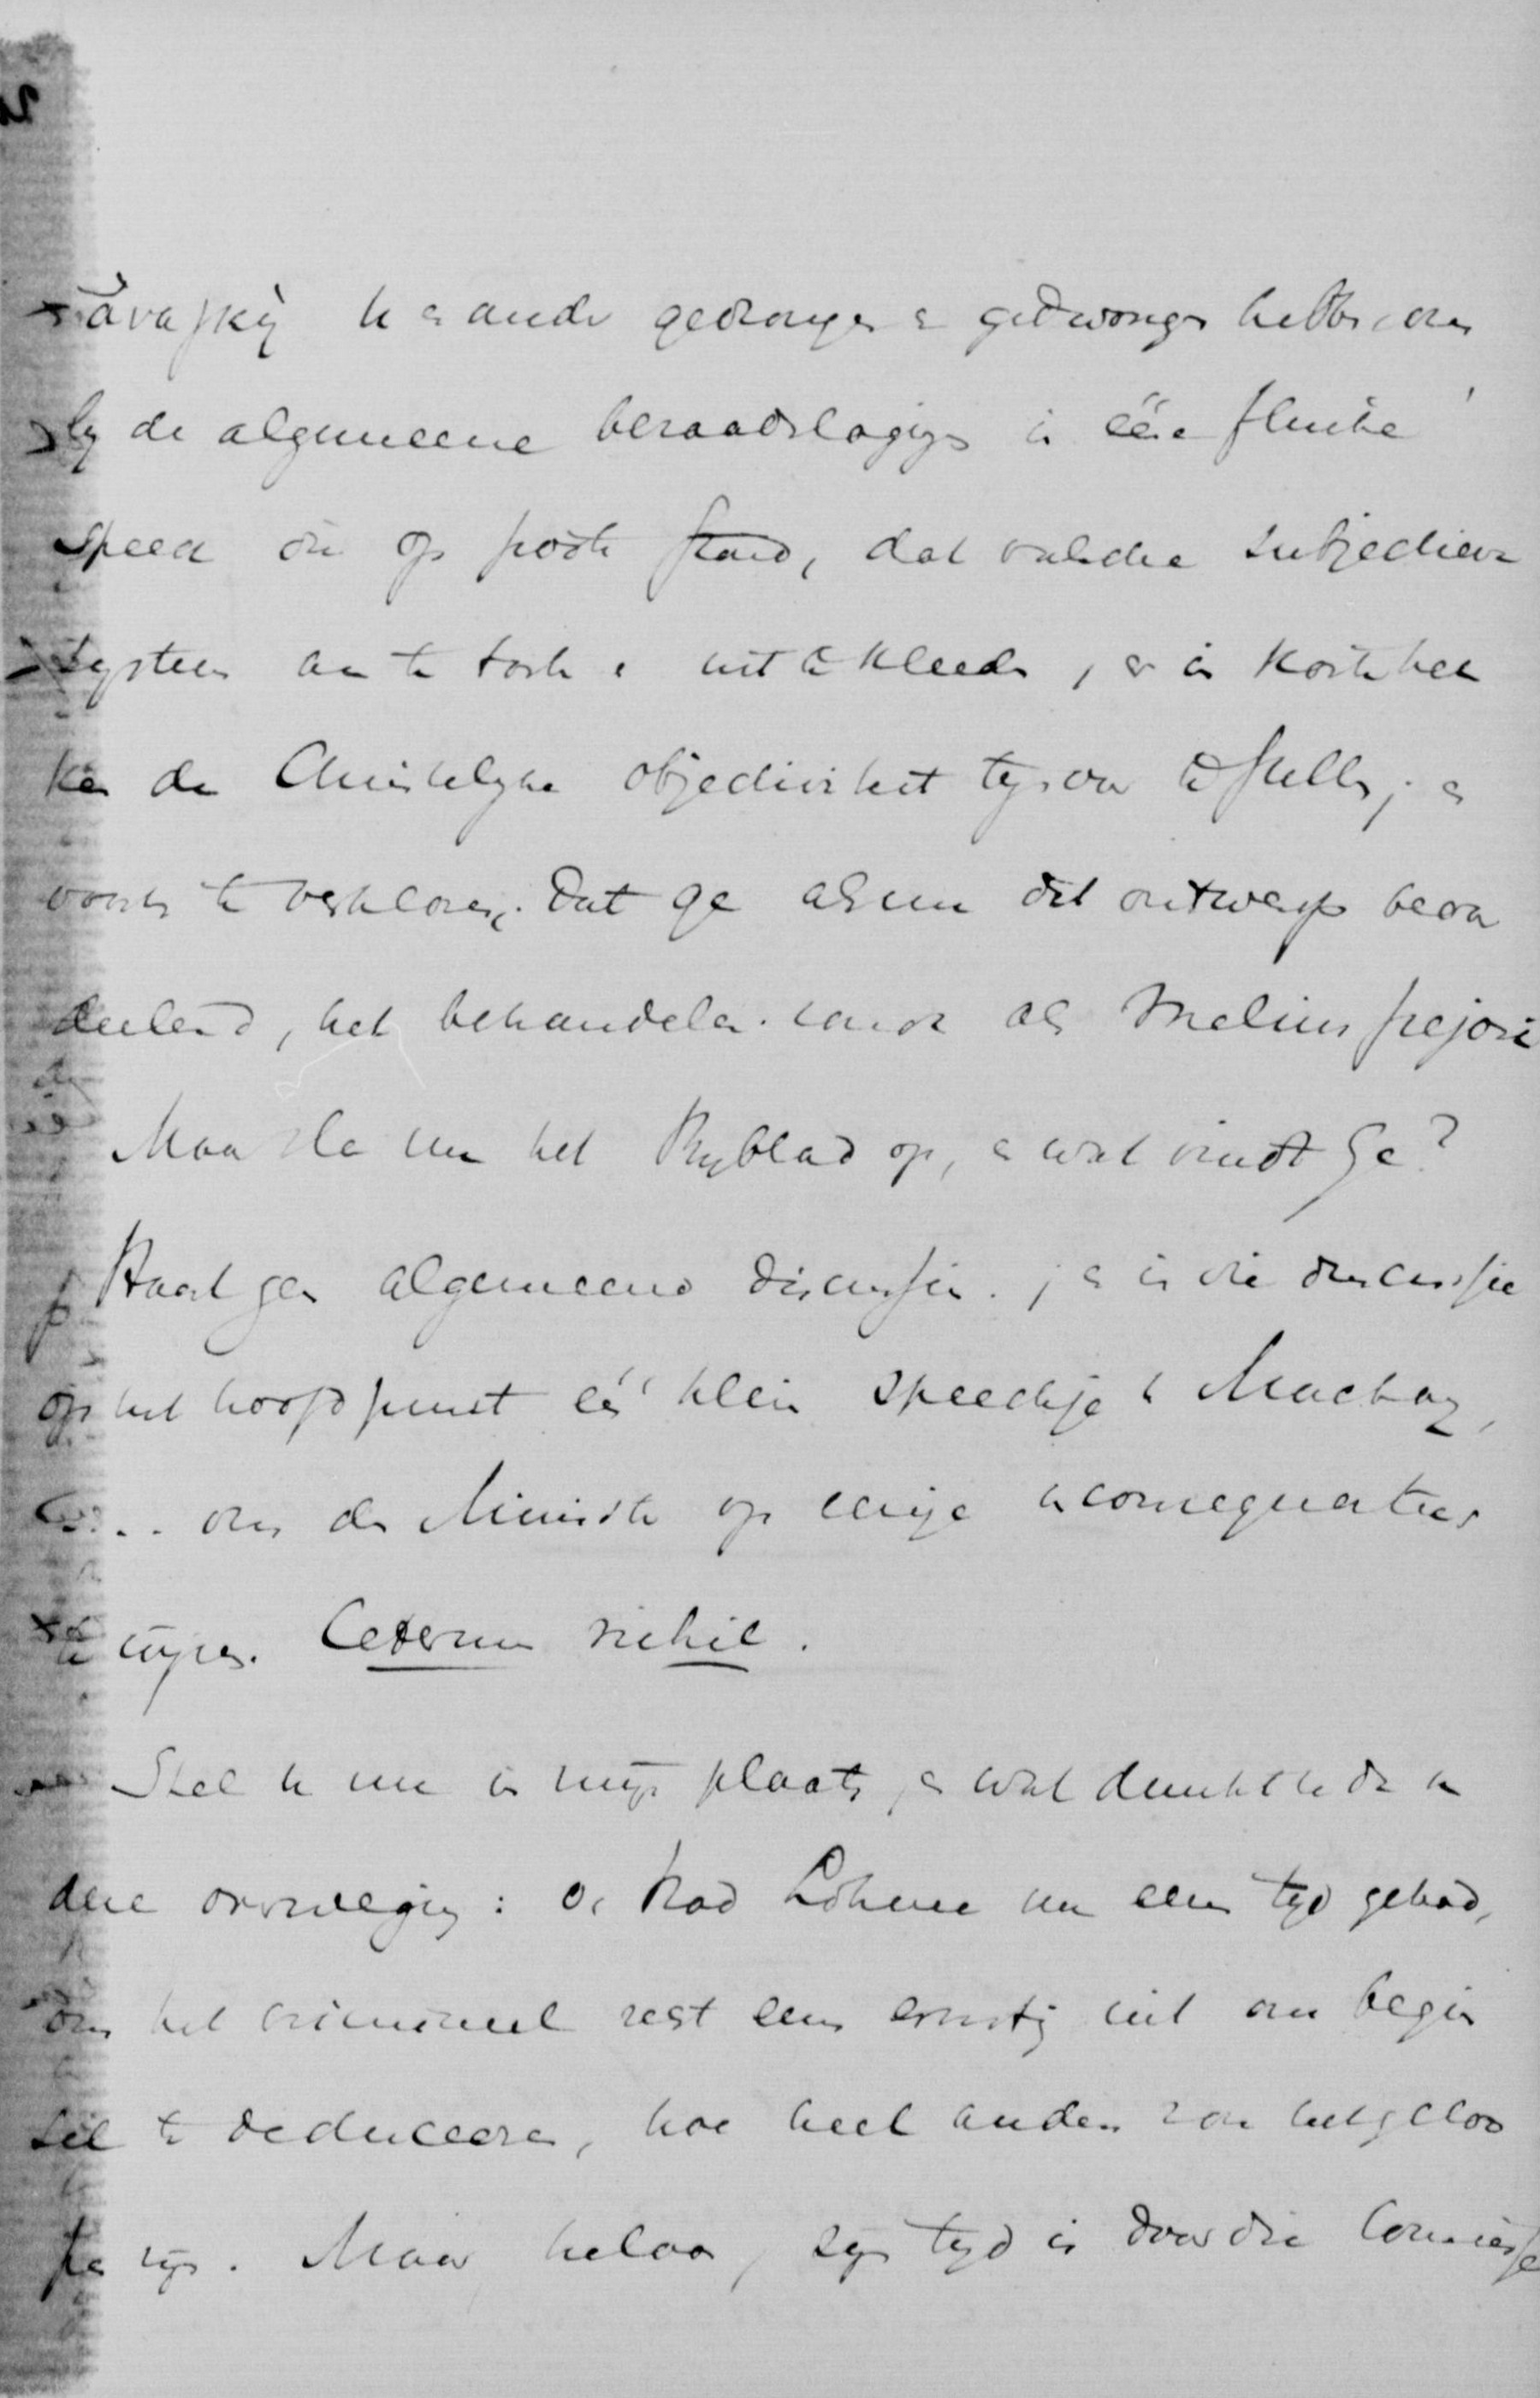 ἀναγκὴ u en ander gedrongen en gedwongen hebben, om
by de algemeene beraadslagingen in ééne flinke
speech die op pooten stond, dat valsche subjectieve
systeem aan te tasten en uit te kleeden, en in korte trek
ken de Christelyke objectiviteit tegenover te stellen; en
voorts te verklaren, dat ge alsnu dit ontwerp beoor
deelend, het behandelen zoudt als melius pejori
Maar sla nu het Byblad op, en wat vindt Ge?
Haast geen algemeene discussie; en in die discussie
op het hoofdpunt één klein speechje v Mackay,
.. om den Minister op eenige inconsequenties
te wyzen. Ceterum nihil.
Stel u nu in myn plaats, en wat dunkt u dan
overweging: O, had Lohman nu eens tyd gehad,
om het crimineel recht eens ernstig uit ons begin
sel te deduceeren, hoe heel anders zou het geloo
pen zyn. Maar helaas, zyn tyd is door die Commissie